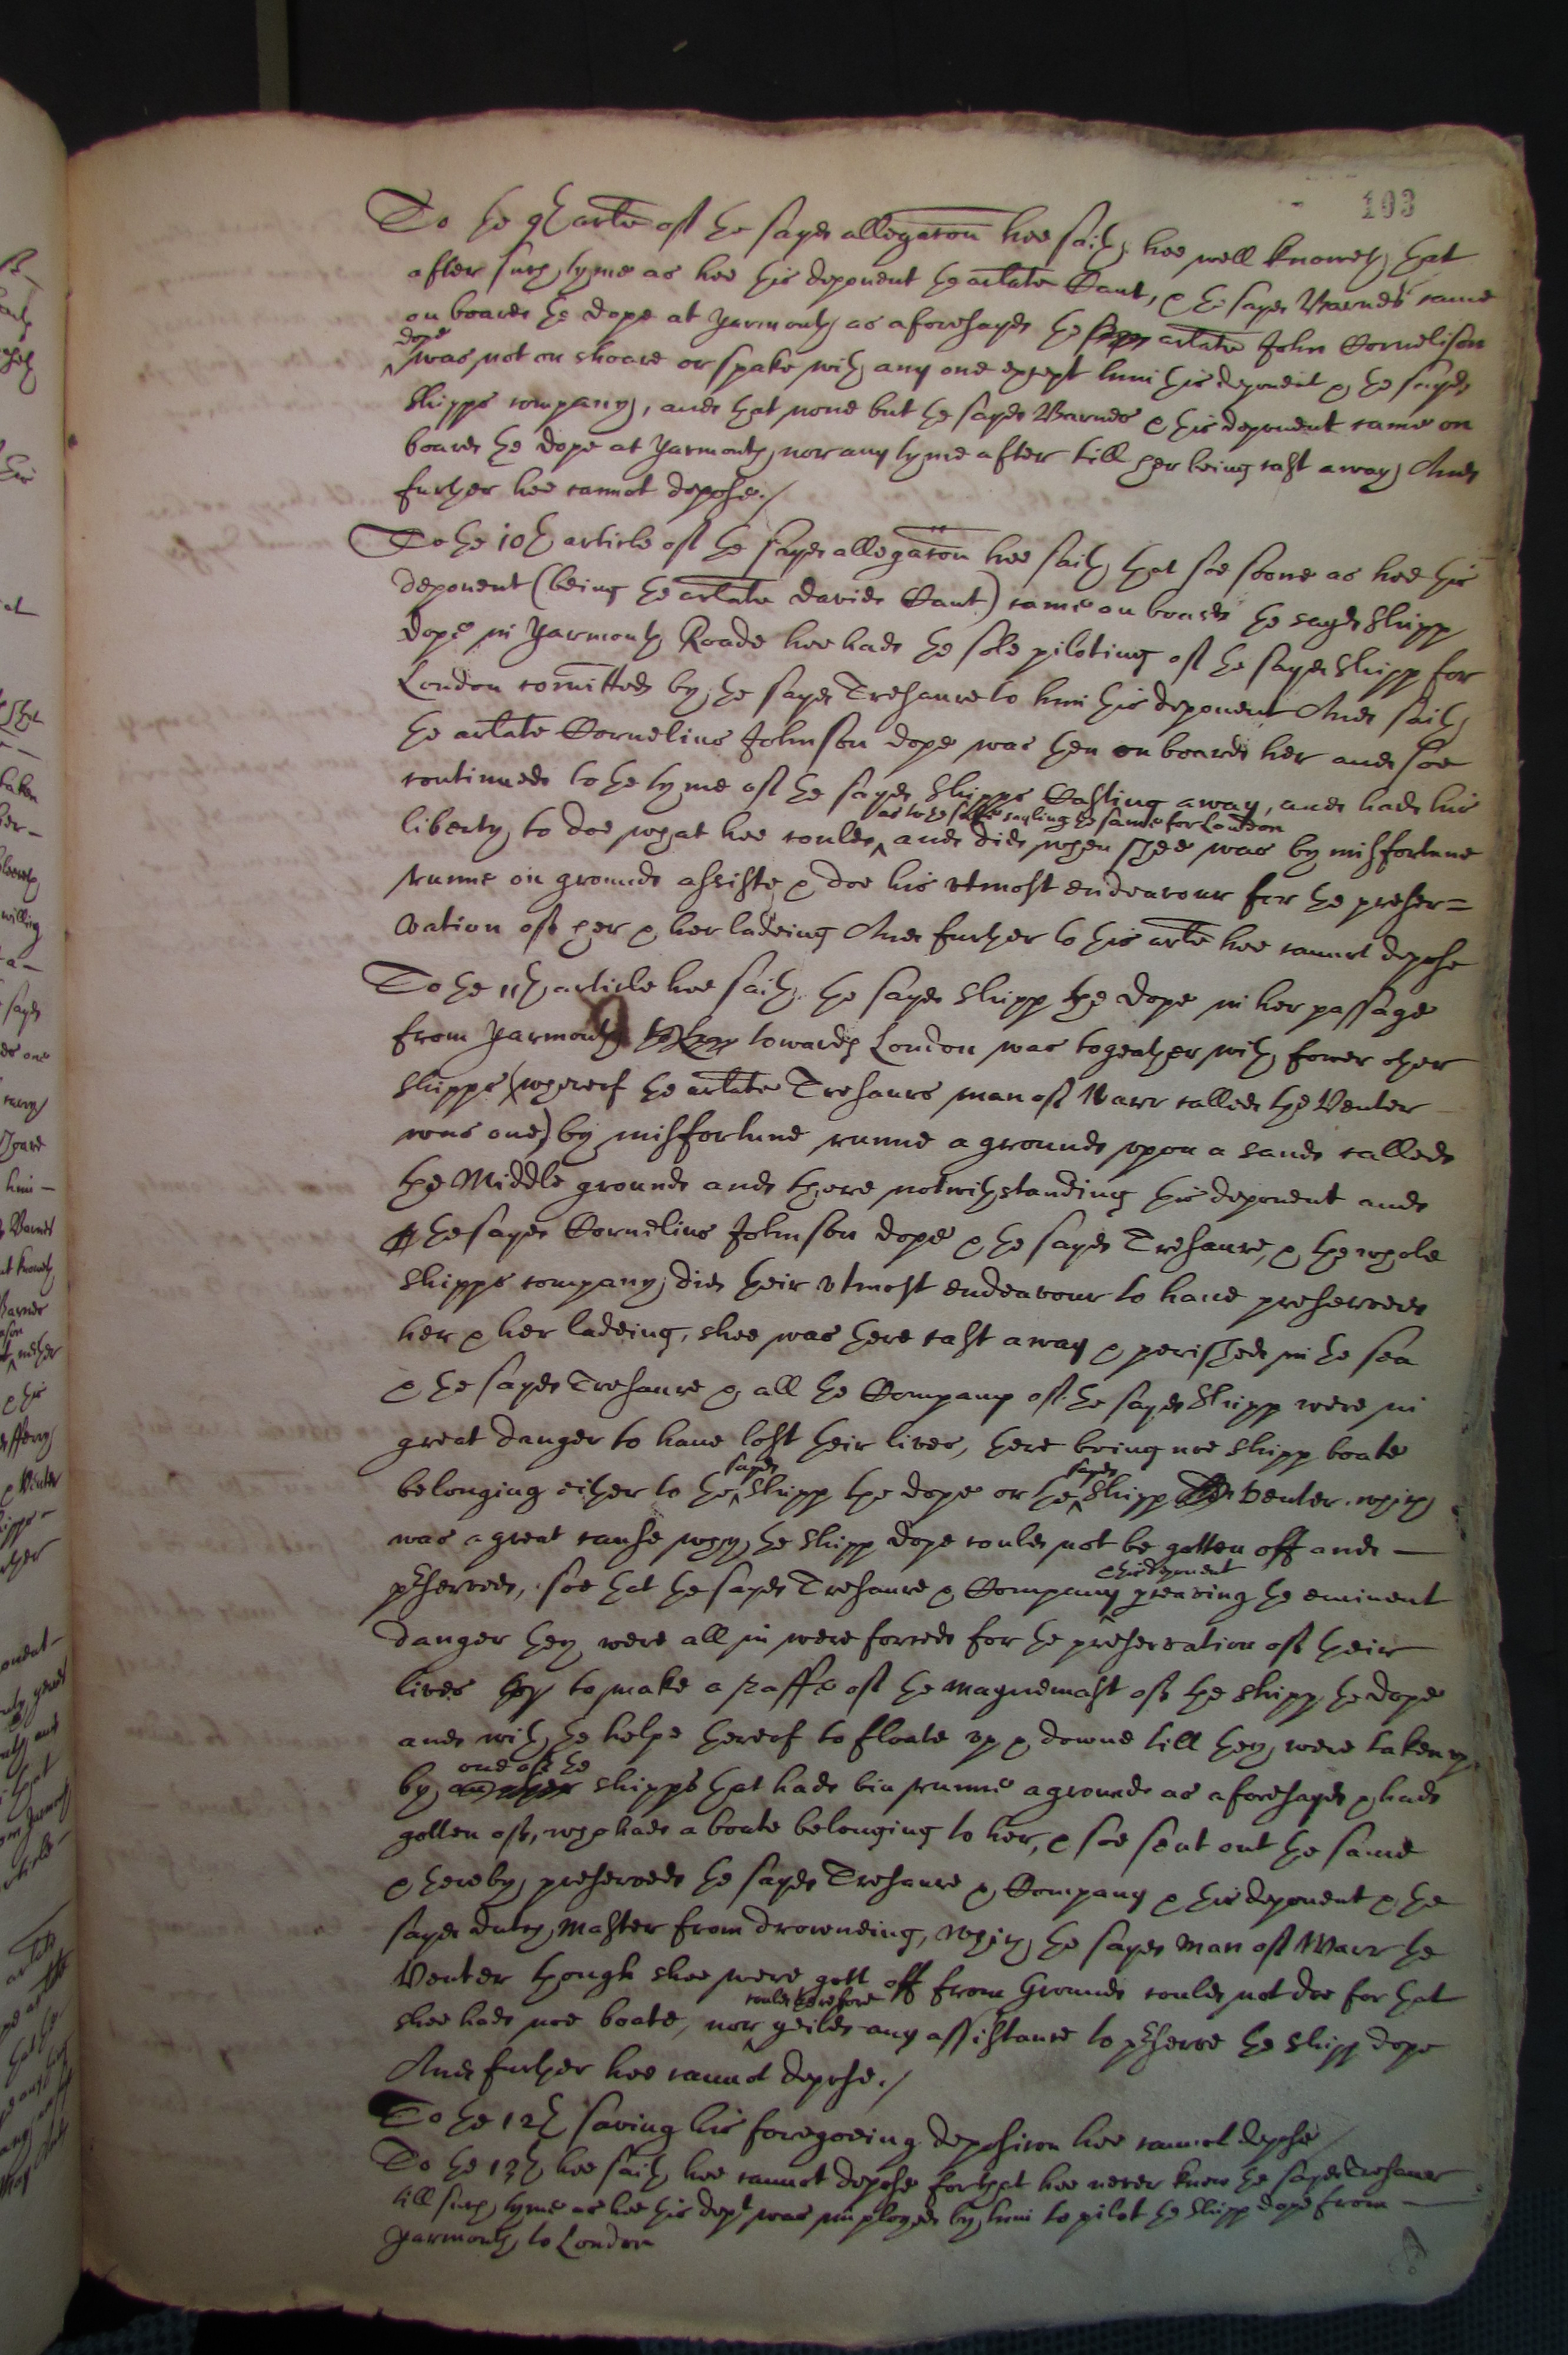 193
To the 9th arlte of the sayd allegacon hee saith hee well knoweth that
after such tyme as hee this deponent the arlate Gant, & the sayd Barnes came
on board the dope at yarmouth as aforesayd the arlate John Cornelison
dope
was not on shoare or spake with any one except him this deponent & the sayd
shipps company, and that none but the sayd Barnes & this deponent came on
board the dope at yarmouth nor any tyme after till her being cast away And
further hee cannot depose./
To the 10th article of the sayd allegacon hee saith that soe soone as hee this
deponent (being the arlate david Gant) came on board the sayd shipp
dope in yarmouth Roade hee had the sole piloting of the sayd shipp for
London comitted by the sayd Tresaure to him this deponent And saith
the arlate Cornelius Johnson dope was then on board her and soe
continued to the tyme of the sayd shipps Casting away, and had his
as to the sayling the same for London
liberty to doe what hee could and did when shee was by misfortune
runne on ground assiste & doe his utmost endeavour for the preser=
vation of her & her ladeing And further to this arlte hee cannot depose
To the 11th article hee saith the sayd shipp the dope in her passage
from yarmouth towards London was togeather with fower other
shipps (whereof the arlate Tresaurs man of Warr called the Venter
was one) by misfortune runne a ground upon a sand called
the Middle ground and there notwithstanding this deponent and
the sayd Cornelius Johnson dope & the sayd Tresaure, & the whole
shipps company did their utmost endeavour to have preserved
her & her ladeing, shee was there cast away & perished in the sea
& the sayd Tresaure & all the Company of the sayd shipp were in
great danger to have lost their lives, there being noe shipp boate
sayd sayd
belonging either to the shipp the dope or the shipp Venter which
was a great cause why the shipp dope could not be gotten off and
& this deponent
pserved, soe that the sayd Tresaure & Company the eminent
danger they were all in were forced for the preservation of their
lives to make a raffe of the maynemast of the shipp the dope
and with the helpe thereof to floate up & downe till they were taken up
one of the
by shipps that had bin runne a ground as aforesayd & had
gotten off, wch had a boate belonging to her, & soe sent out the same
& thereby preserved the sayd Tresaure & Company & this deponent & the
sayd dutch Master from drowneing, which the sayd man of Warr the
Venter though shee were gott off from Ground could not doe for that
could therefore
shee had noe boate, nor yeild any assistance to pserve the shipp dope
And further hee cannot depose./
To the 12th saving his foregoeing deposicon hee cannot depose
To the 13th hee saith hee cannot depose for that hee never knew the sayd Tresaure
till such tyme as hee this dept was imployed by him to pilot the shipp dope from
yarmouth to London